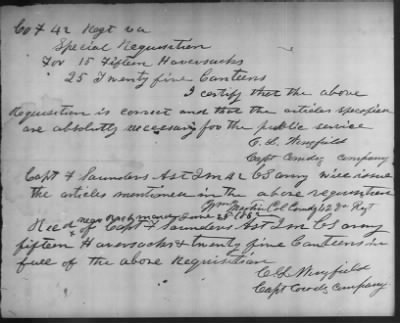 Co F 42 Regt va
Special Requisition
For 15 Fifteen Haversacks
25 Twenty five Canteens
I certify that the above
Requisition is correct and that the articles specified
are absolutly necessary for the public service
C. L. Wingfield
Capt Comdg company
Capt F Saunders Ast Q M 42 CS army will issue
the articles mentioned in the above requisition
Wm Martin Col Comdg 42 Regt
near Richmond June 28 1862
Recd of Capt F Saunders Ast Q M CS army
fifteen Haversacks & twenty five Canteens in
full of the above Requisition
C L Wingfield
Capt Comdg company